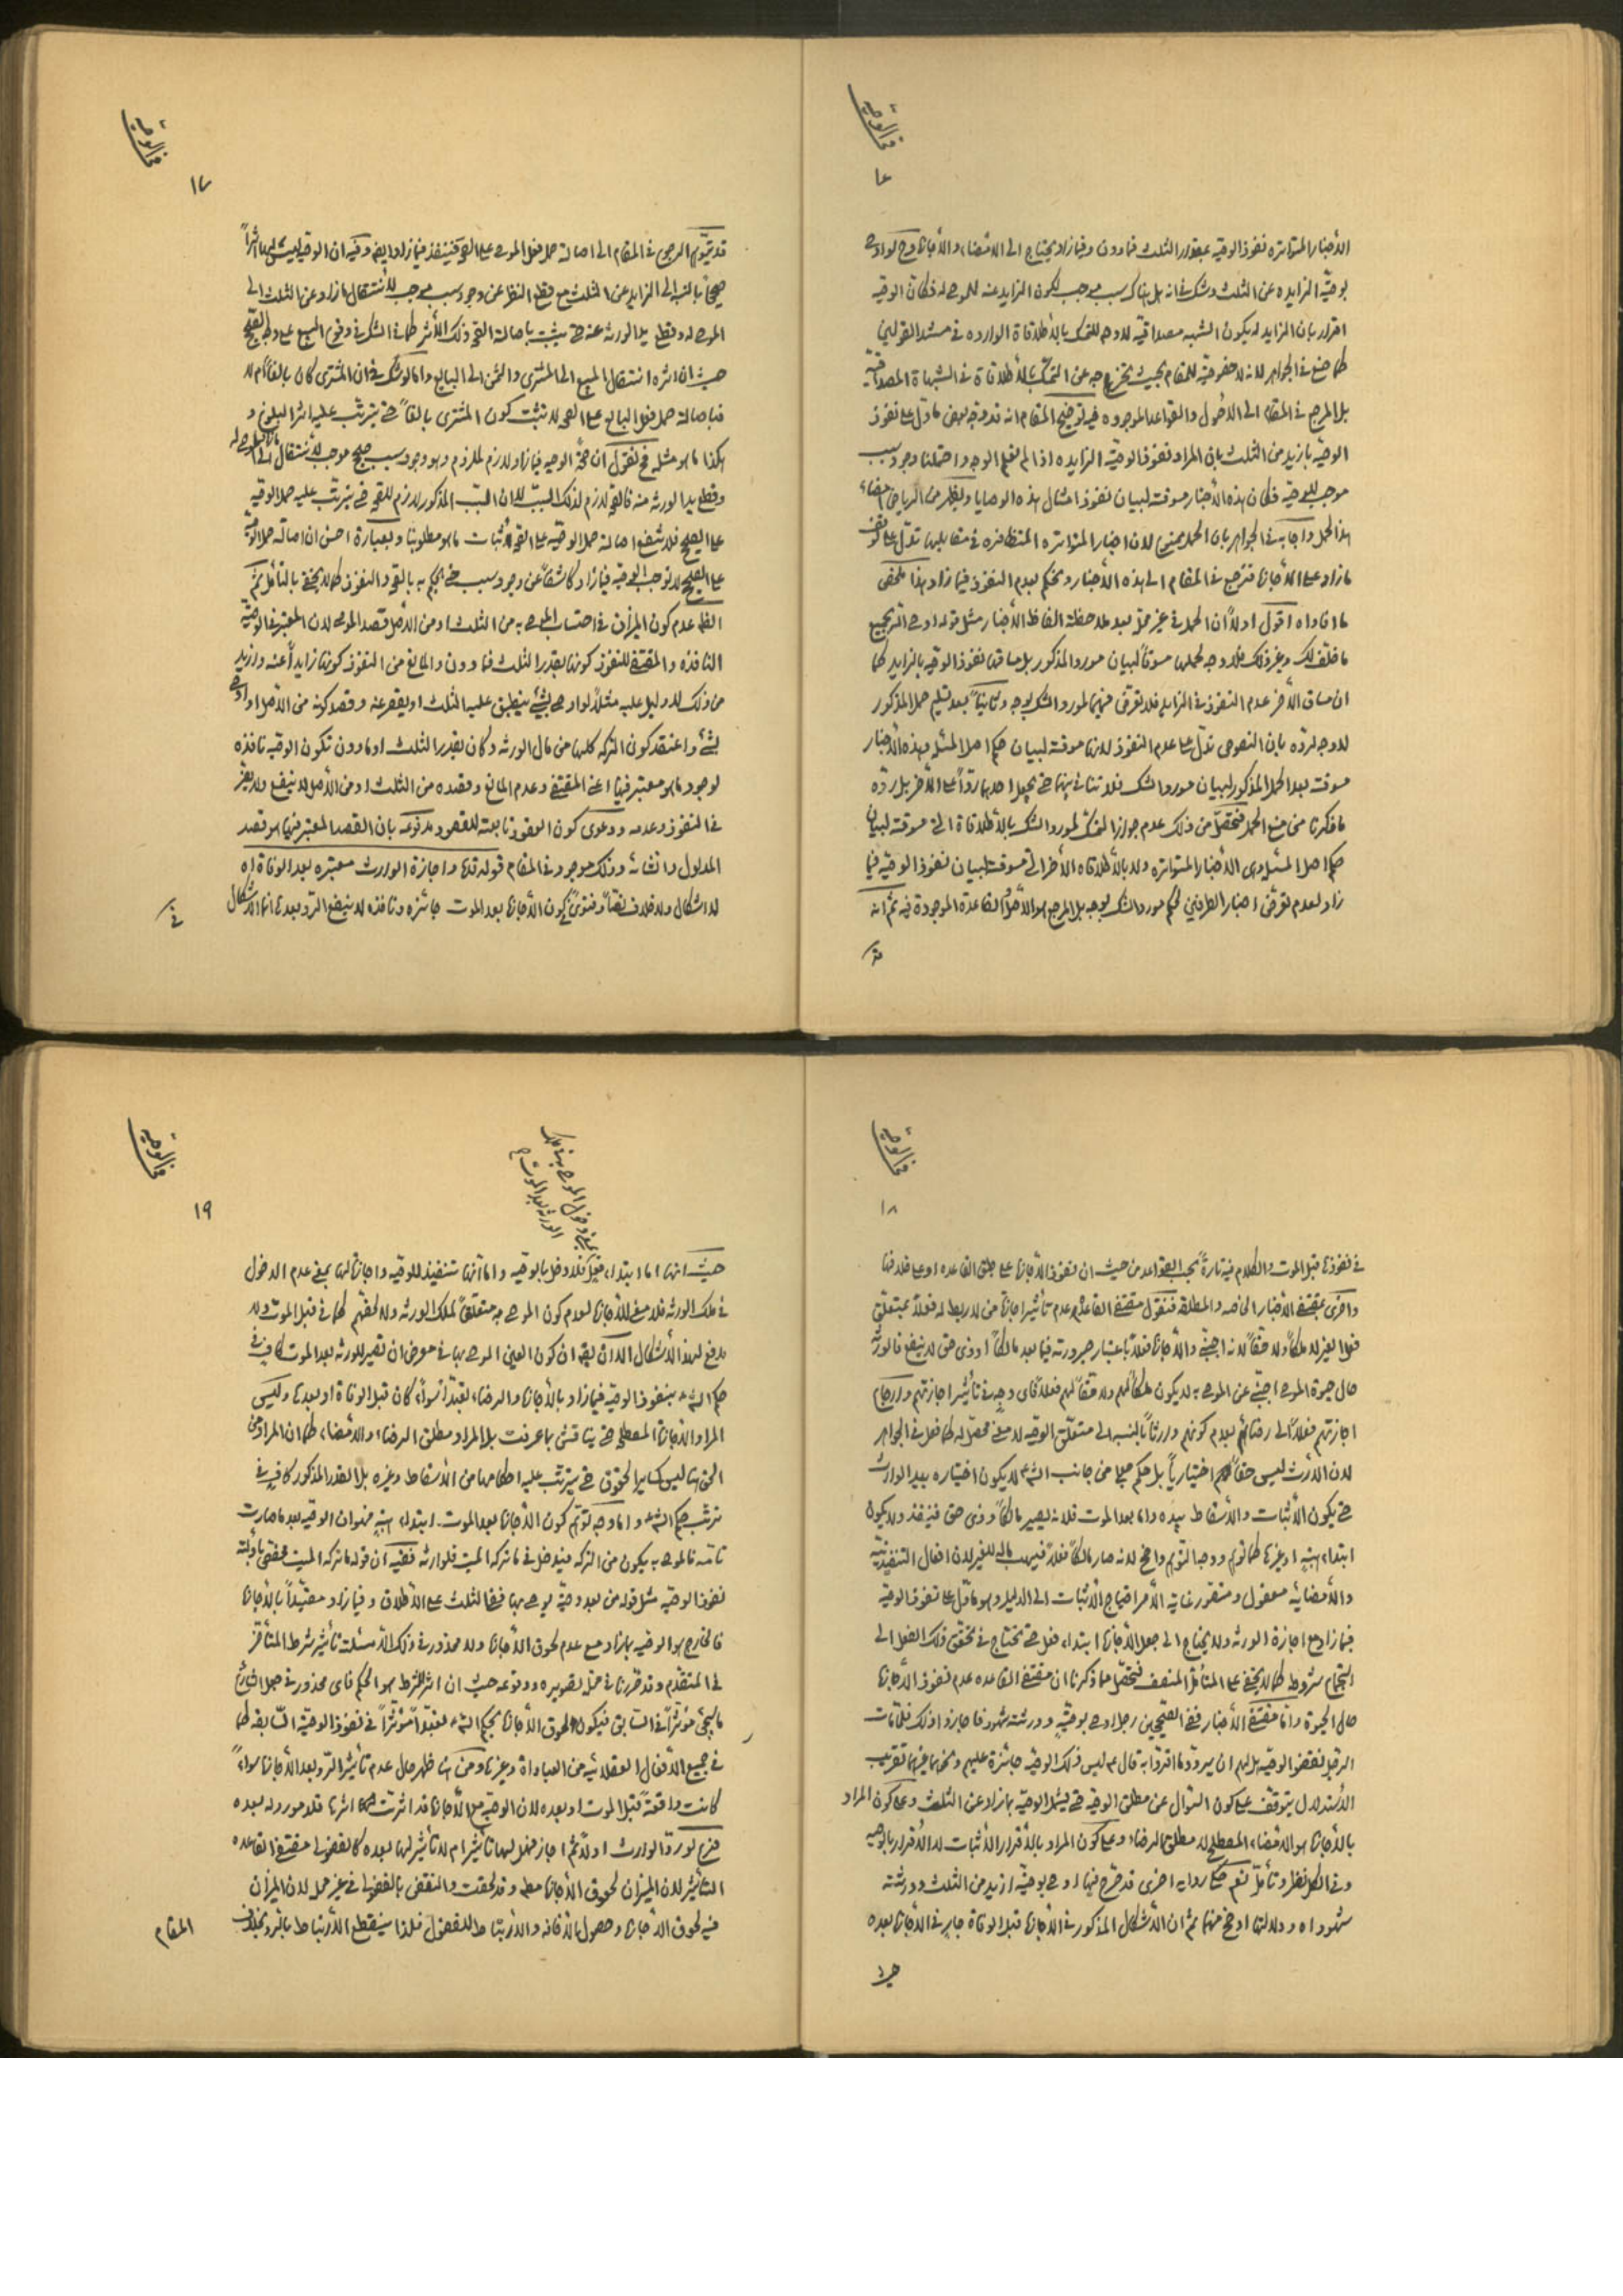 في الوصية
١٦
الأخبار المتواتره نفوذ الوصية بمقدار الثلث فما دون وفيما زاد يحتاج الى الامضاء والأجازة وح لو اوصى
بوصية الزايده عن الثلث وشك في انه هل هناك سبب موجب لكون الزايد عنه للموصى له فكان الوصية
اقرار بان الزايد له يكون الشبهه مصداقية لا وجه للتمسك بالأطلاقات الوارده في
كما صنع في الجواهر لانه لا خصوصية للمقام بحيث يخرج به عن التمسك بالأطلاقات في الشبهات المصداقية
بل المرجع في المقام الى الاصول والقواعد الموجوده فيه توضيح المقام انه قد وقع بعض ما دل على نفوذ
الوصية بازيد من الثلث بان المراد نفوذ الوصية الزايده اذا لم نعلم الوجه واحتملنا وجود سبب
موجب للوصية فكان هذه الأخبار مسوقة لبيان نفوذ امثال هذه الوصايا ويظهر من الرياض امضاء
هذا الحمل واجابه في الجواهر بان الحمل ممنوع لان اخبار المتواتره المتظافره في مقابلها تدل على توقف
ما زاد على الأجازة فنرجع في المقام الى هذه الأخبار ونحكم بعدم النفوذ فيما زاد هذا ملخص
ما افاداه اقول اولاً ان الحمل في غير محله بعد ملاحظة الفاظ الأخبار مثل قوله اوصى
ما خلف لك وغير ذلك فلا وجه لحملها مسوقاً لبيان مورد المذكور بل مساقها نفوذ الوصية بالزايد كما
ان مساق الأخر عدم النفوذ في الزايد فلا تعرض فيهما لمورد الشك بوجه وثانياً بعد تسليم حمل المذكور
لا وجه لرده بان النصوص تدل على عدم النفوذ لانها مسوقة لبيان حكم اصل المسئلة وهذه الأخبار
مسوقة بعد الحمل المذكور لبيان مورد الشك فلا تنافي بينهما حتى يجعل احدهما رداً على الأخر بل رده
ما ذكرنا من منع الحمل فتحصل من ذلك عدم جواز التمسك لمورد الشك بالأطلاقات التي مسوقة لبيان
حكم اصل المسئلة وهي الأخبار المتواتره ولا بالأطلاقات الأخر التي مسوقة لبيان نفوذ الوصية فيما
زاد لعدم تعرض اخبار الطرفين لحكم مورد الشك بوجه بل المرجع هو الأصل القاعدة الموجودة فيه ثم انه
قد
في الوصية
١٧
قد يتوهم الرجوع في المقام الى اصالة حمل فعل الموصي على الصحة فينفذ فيما زاد ايضا وفيه ان الوصية ليست لها اثراً
صحيحاً بالنسبة الى الزايد عن الثلث مع قطع النظر عن وجود سبب موجب للأنتقال ما زاد عن الثلث الى
الموصى له وقطع يد الورثه عنه حتى يثبت باصالة الصحة ذلك الأثر كما في الشك في وقوع البيع على وجه الصحيح
حيث ان اثره انتقال المبيع الى المشتري والثمن الى البايع واما لو شك في ان المشتري كان بالغاً ام لا
فباصالة حمل فعل البايع على الصحة لا يثبت كون المشتري بالغاً حتى يترتب عليه اثر البلوغ و
هكذا ما هو مثله فح نقول ان صحة الوصية فيما زاد لازم لملزوم وهو وجود سبب صحيح موجب للأنتقال الى الموصى له
وقطع يد الورثه منه فالصحة لازم لذلك السبب لا ان السبب المذكور لازم للصحة حتى يترتب عليه حمل الوصية
على الصحيح فلا تنفع اصالة حمل الوصية على الصحة لأثبات ما هو مطلوبنا وبعبارة احسن ان اصالة حمل الوصية
على الصحيح لا توجب الوصية فيما زاد كاشفاً عن وجود سبب حتى يحكم به بالصحة والنفوذ كما لا يخفى بالتأمل ثم
الظ عدم كون الميزان في احتساب الموصى به من الثلث او من الأصل قصد الموصي لان المعتبر في الوصية
النافذه والمقتضى للنفوذ كونها بقدر الثلث فما دون والمانع من النفوذ كونها زايداً عنه وازيد
من ذلك لا دليل عليه مثلاً لو اوصى بشيء ينطبق عليه الثلث او يقصر عنه وقصد كونه من الأصل او اوصى
بشيء واعتقد كون التركه كلها من مال الورثه وكان بقدر الثلث او ما دون تكون الوصية نافذه
لوجود ما هو معتبر فيها اعني المقتضى وعدم المانع وقصده من الثلث او من الأصل لا ينفع ولا يضر
في النفوذ وعدمه ودعوى كون العقود تابعة للقصود مدفوعه بان القصد المعتبر فيها هو قصد
المدلول وانشائه وذلك موجود في المقام قوله قده واجازة الوارث معتبره بعد الوفاة اه
لا اشكال ولا خلاف نصاً وفتوى في كون الأجازة بعد الموت جائزه ونافذه لا ينفع الرد بعدها انما الاشكال
في
في الوصية
١٨
في نفوذها قبل الموت والكلام فيه تارةً بحسب القواعد من حيث ان نفوذ الأجازة على طبق القاعده او على خلافها
واخرى بمقتضى الأخبار الخاصه والمطلقة فنقول مقتضى القاعده عدم تأثير اجازة من لا ربط له فعلاً بمتعلق
فعل الغير لا ملكاً ولا حقاً لانه اجنبي والأجازة فعلاً باعتبار صيرورته فيما بعد مالكاً او ذي حق لا ينفع فالورثة
حال حيوة الموصي اجنبي عن الموصى به لا يكون ملكاً لهم ولا حقاً لهم فعلاً فاي وجه في تأثير اجازتهم وارجاع
اجازتهم فعلاً الى رضائهم بعدم كونهم وارثاً بالنسبه الى متعلق الوصية لا معنى محصل له كما فعل في الجواهر
لان الارث ليس حقاً اختيارياً بل حكم مجعول من جانب الشه لا يكون اختياره بيد الوارث
حتى يكون الأثبات والأسقاط بيده واما بعد الموت فلانه يصير مالكاً وذي حق فينفذ ولا يكون
ابتداء هبة او غيرها كما توهم ووجه التوهم واضح لانه صار مالكاً فعلاً فيهب ماله للغير لان افعال التنفيذية
والأمضائية معقول ومتصور غاية الأمر احتياج الأثبات الى الدليل وهو ما دل على نفوذ الوصية
فيما زاد مع اجازة الورثه ولا يحتاج الى جعل الأجازة ابتداء فعل حتى يحتاج في تحقق ذلك الفعل الى
اجتماع شروط كما لا يخفى على المتأمل المنصف فتحصل مما ذكرنا ان مقتضى القاعده عدم نفوذ الأجازة
حال الحيوة واما مقتضى الأخبار ففي الصحيحين رجل اوصى بوصيةٍ وورثته شهود فاجازوا ذلك فلما مات
الرجل نقضوا الوصية هل لهم ان يردوا ما اقروا به قال ع ليس ذلك الوصية جائزة عليهم ونحوهما غيرهما تقريب
الأستدلال يتوقف على كون السؤال عن مطلق الوصية حتى يشمل الوصية بما زاد عن الثلث وعلى كون المراد
بالأجازة هو الامضاء المصطلح لا مطلق الرضاء وعلى كون المراد بالأقرار الأثبات لا الأقرار بالوصية
وفي الكل نظر وتأمل نعم هناك روايه اخرى قد صرح فيها اوصى بوصية ازيد من الثلث وورثته
شهود اه ودلالتها اوضح منهما ثم ان الأشكال المذكور في الأجازة قبل الوفاة جارٍ في الأجازة بعده
حيث
في الوصية
١٩
بمعنى دخول الموصى بها في ملك
الورثة بعد الموت
حيث انها اما ابتداء فعل فلا دخل بالوصية واما انها تنفيذ للوصية واجازة لها بمعنى عدم الدخول
في ملك الورثه فلا معنى للأجازة لعدم كون الموصى به متعلقاً لملك الورثه ولا لحقهم كما في قبل الموت ولا
مدفع لهذا الأشكال الا ان يقال ان كون العين الموصى بها في معرض ان تصير للورثه بعد الموت كافٍ في
حكم الشه بنفوذ الوصية فيما زاد بالأجازة والرضاء بعداً سواء كان قبل الوفاة او بعدها وليس
المراد الأجازة المصطلح حتى يناقش بما عرفت بل المراد مطلق الرضاء والأمضاء كما ان المراد من
الحق هنا ليس كساير الحقوق حتى يترتب عليه احكامها من الأسقاط وغيره بل القدر المذكور كافٍ في
ترتب حكم الشه واما وجه توهم كون الأجازة بعد الموت ابتداء هبةٍ فهو ان الوصية بعد ما صارت
تامة فالموصى به يكون من التركه فيدخل في ما تركه الميت فلوارثه ففيه ان قوله ما تركه الميت مخصص بأدلة
نفوذ الوصية مثل قوله من بعد وصية يوصى بها ففي الثلث على الأطلاق وفيما زاد مقيداً بالأجازة
فالخارج هو الوصية بما زاد مع عدم لحوق الأجازة ولا محذور في ذلك الا مسئلة تأثير شرط المتأخر
في المتقدم وقد قررنا في محله تصويره ووقوعه حيث ان اثر الشرط هو الحكم فاي محذور في جعل الشارع
ما يجيء مؤثراً في السابق فيكون لحوق الأجازة بحكم الشه مؤثراً في نفوذ الوصية السابقه كما
في جميع الأفعال العقلائيه من العبادات وغيرها ومن هنا ظهر حال عدم تأثير الرد بعد الأجازة سواء
كانت واقعةً قبل الموت او بعده لان الوصية مع الأجازة قد اثرت اثرها فلا مورد له بعده
فرع لو رد الوارث اولاً ثم اجاز فهل لها تأثير ام لا تأثير لها بعده كالفضولي مقتضى القاعده
التأثير لان الميزان لحوق الأجازة وقد لحقت والنقض بالفضولي في غير محله لان الميزان
فيه لحوق الأجازة وحصول الأضافه والأرتباط للفضولي فلذا ينقطع الأرتباط بالرد بخلاف
المقام